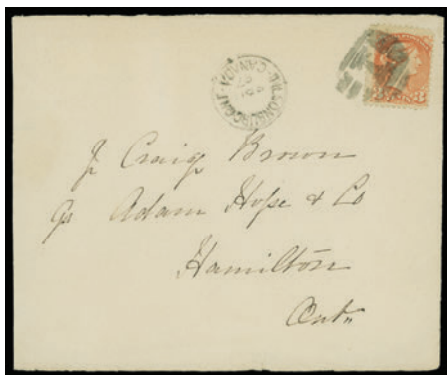 TILSONBURG ONT.
CANADA
3 3
J Craig Brown
c/o Adam Hope & Co
Hamilton
Ont"